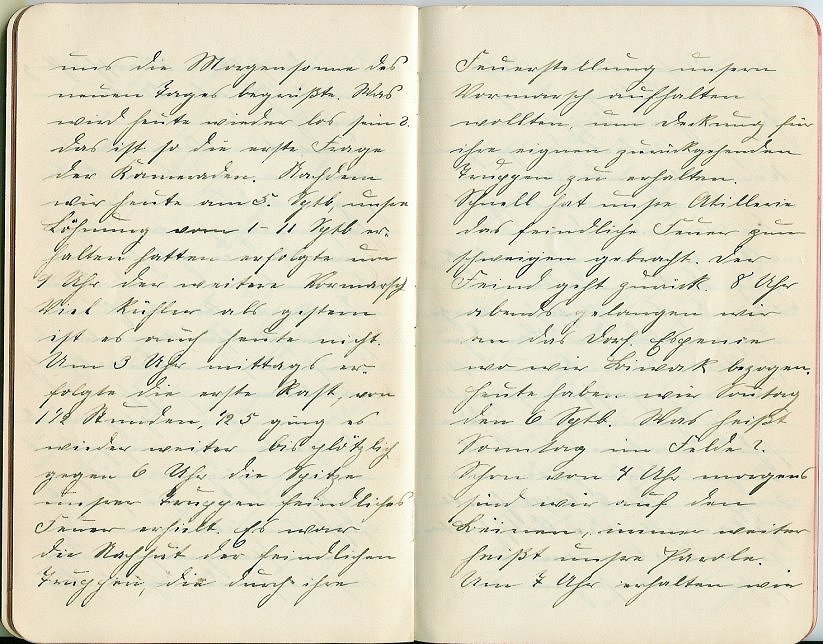 uns die Morgensonne des
neuen Tages begrüßte. Was
wird heute wieder los sein?.
das ist so die erste Frage
der Kameraden. Nachdem
wir heute am 5. Sptb. unsre
Löhnung vom 1–11 Sptb er-
halten hatten erfolgte um
9 Uhr der weitere Vormarsch
Viel kühler als gestern
ist es auch heute nicht.
Um 3 Uhr mittags er-
folgte die erste Rast, von
1½ Stunden, ½ 5 ging es
wieder weiter bis plötzlich
gegen 6 Uhr die Spitze
unsrer Truppen feindliches
Feuer erhielt. Es war
die Nachhut der feindlichen
Truppen, die durch ihre
Feuerstellung unsern
Vormarsch aufhalten
wollten, um Deckung für
ihre eignen zurückgehenden
Truppen zu erhalten.
Schnell hat unsre Atillerie
das feindliche Feuer zum
schweigen gebracht. Der
Feind geht zurück. 8 Uhr
abends gelangen wir
an das Dorf. Espenie
wo wir Biwak bezogen.
Heute haben wir Sontag
den 6 Sptb. Was heißt
Sonntag im Felde?.
Schon von 4 Uhr morgens
sind wir auf den
Beinen, immer weiter
heißt unsre Parole.
Um 7 Uhr erhalten wir